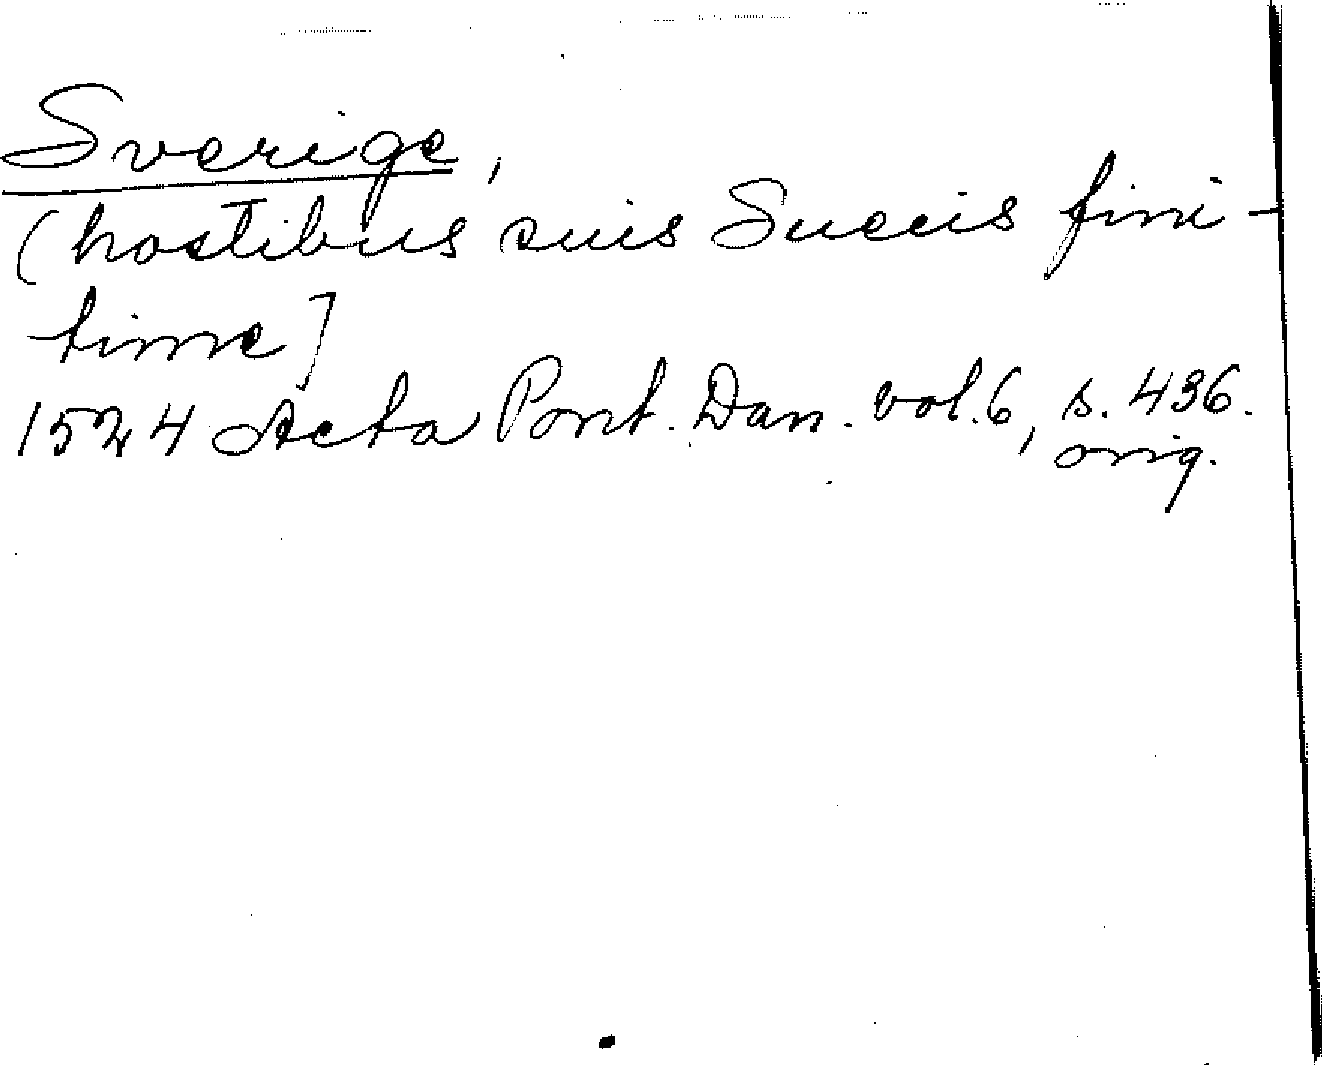 Sverige,
(hostibus suis Suecis fini-
time]
1524 Acta Pont. Dan. vol. 6, s. 436.
orig.